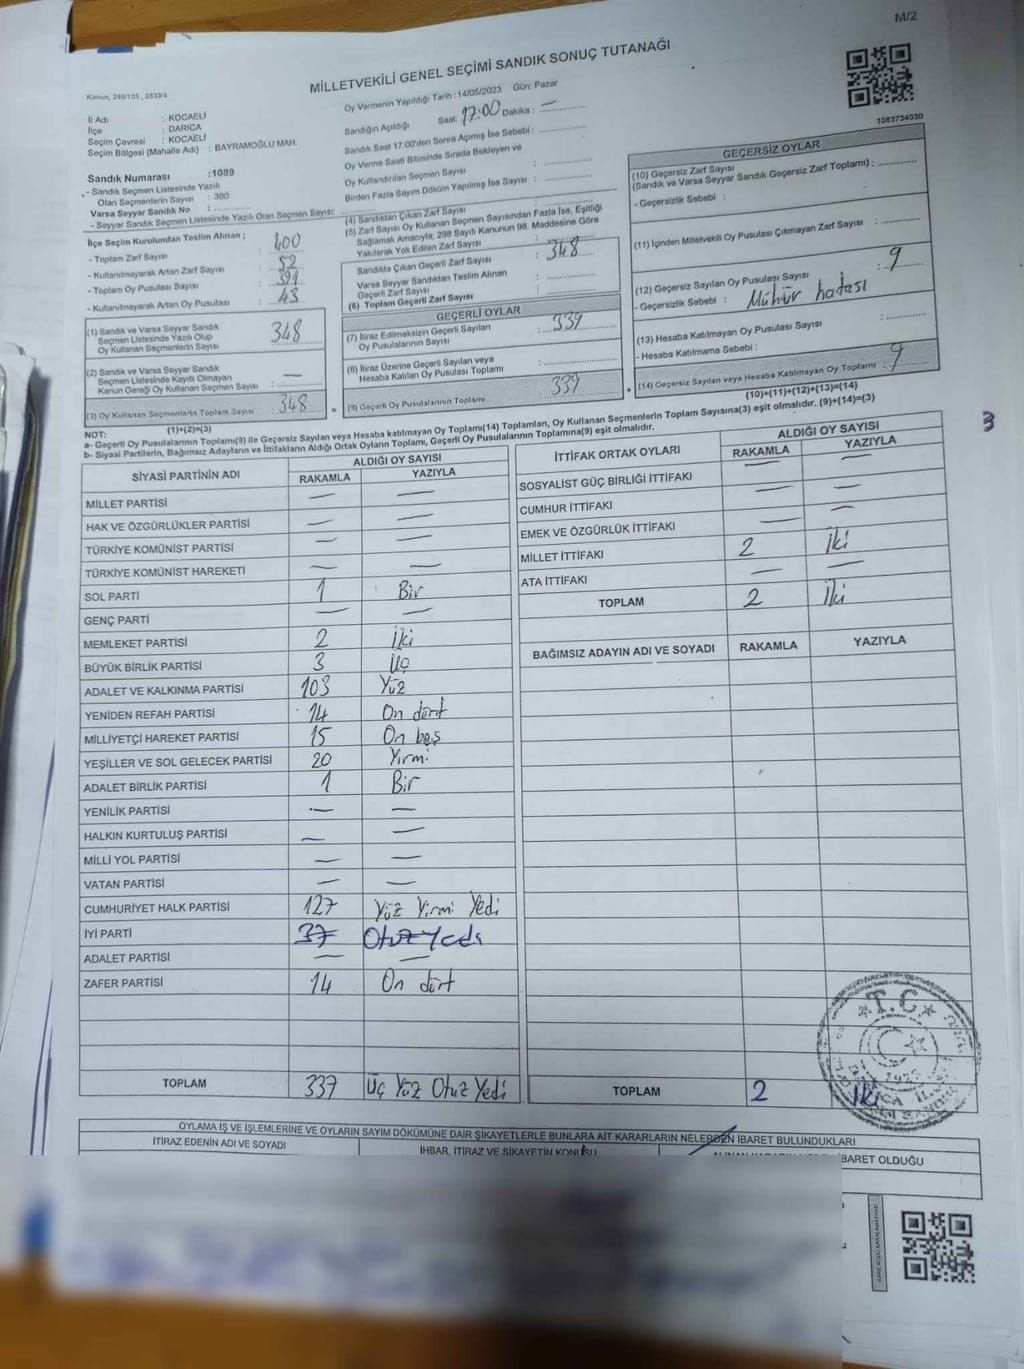 M/2
MİLLETVEKİLİ GENEL SEÇİMİ SANDIK SONUÇ TUTANAĞI
Kanun, 298/105 , 2839/4
1083734030
İl Adı : KOCAELİ
İlçe : DARICA
Seçim Çevresi : KOCAELİ
Seçim Bölgesi (Mahalle Adı) : BAYRAMOĞLU MAH.
Sandık Numarası :1089
- Sandık Seçmen Listesinde Yazılı
Olan Seçmenlerin Sayısı : 380
Varsa Seyyar Sandık No :
- Seyyar Sandık Seçmen Listesinde Yazılı Olan Seçmen Sayısı:
İlçe Seçim Kurulundan Teslim Alınan ;
- Toplam Zarf Sayısı : 400
- Kullanılmayarak Artan Zarf Sayısı : 52
- Toplam Oy Pusulası Sayısı : 391
- Kullanılmayarak Artan Oy Pusulası : 43
(1) Sandık ve Varsa Seyyar Sandık
Seçmen Listesinde Yazılı Olup
Oy Kullanan Seçmenlerin Sayısı : 348
(2) Sandık ve Varsa Seyyar Sandık
Seçmen Listesinde Kayıtlı Olmayan
Kanun Gereği Oy Kullanan Seçmen Sayısı : —
(3) Oy Kullanan Seçmenlerin Toplam Sayısı : 348
(1)+(2)=(3)
Oy Vermenin Yapıldığı Tarih : 14/05/2023 Gün: Pazar
Sandığın Açıldığı Saat: 17:00 Dakika : —
Sandık Saat 17:00'den Sonra Açımış İse Sebebi :
Oy Verme Saati Bitiminde Sırada Bekleyen ve
Oy Kullandırılan Seçmen Sayısı :
Birden Fazla Sayım Döküm Yapılmış İse Sayısı :
(4) Sandıktan Çıkan Zarf Sayısı :
(5) Zarf Sayısı Oy Kullanan Seçmen Sayısından Fazla İse, Eşitliği
Sağlamak Amacıyla; 298 Sayılı Kanunun 98. Maddesine Göre
Yakılarak Yok Edilen Zarf Sayısı :
Sandıkta Çıkan Geçerli Zarf Sayısı : 348
Varsa Seyyar Sandıktan Teslim Alınan
Geçerli Zarf Sayısı :
(6) Toplam Geçerli Zarf Sayısı :
GEÇERLİ OYLAR
(7) İtiraz Edilmeksizin Geçerli Sayılan
Oy Pusulalarının Sayısı : 339
(8) İtiraz Üzerine Geçerli Sayılan veya
Hesaba Katılan Oy Pusulası Toplamı :
(9) Geçerli Oy Pusulalarının Toplamı : 339
GEÇERSİZ OYLAR
(10) Geçersiz Zarf Sayısı
(Sandık ve Varsa Seyyar Sandık Geçersiz Zarf Toplamı) :
- Geçersizlik Sebebi :
(11) İçinden Milletvekili Oy Pusulası Çıkmayan Zarf Sayısı :
(12) Geçersiz Sayılan Oy Pusulası Sayısı : 9
- Geçersizlik Sebebi : Mühür hatası
(13) Hesaba Katılmayan Oy Pusulası Sayısı :
- Hesaba Katılmama Sebebi :
(14) Geçersiz Sayılan veya Hesaba Katılmayan Oy Toplamı : 9
(10)+(11)+(12)+(13)=(14)
NOT:
a- Geçerli Oy Pusulalarının Toplamı(9) ile Geçersiz Sayılan veya Hesaba katılmayan Oy Toplamı(14) Toplamları, Oy Kullanan Seçmenlerin Toplam Sayısına(3) eşit olmalıdır. (9)+(14)=(3)
b- Siyasi Partilerin, Bağımsız Adayların ve İttifakların Aldığı Ortak Oyların Toplamı, Geçerli Oy Pusulalarının Toplamına(9) eşit olmalıdır.
3
SİYASİ PARTİNİN ADI ALDIĞI OY SAYISI
RAKAMLA YAZIYLA
MİLLET PARTİSİ — —
HAK VE ÖZGÜRLÜKLER PARTİSİ — —
TÜRKİYE KOMÜNİST PARTİSİ — —
TÜRKİYE KOMÜNİST HAREKETİ — —
SOL PARTİ 1 Bir
GENÇ PARTİ — —
MEMLEKET PARTİSİ 2 İki
BÜYÜK BİRLİK PARTİSİ 3 Üç
ADALET VE KALKINMA PARTİSİ 103 Yüz
YENİDEN REFAH PARTİSİ 14 On dört
MİLLİYETÇİ HAREKET PARTİSİ 15 On beş
YEŞİLLER VE SOL GELECEK PARTİSİ 20 Yirmi
ADALET BİRLİK PARTİSİ 1 Bir
YENİLİK PARTİSİ — —
HALKIN KURTULUŞ PARTİSİ — —
MİLLİ YOL PARTİSİ — —
VATAN PARTİSİ — —
CUMHURİYET HALK PARTİSİ 127 Yüz Yirmi Yedi
İYİ PARTİ 37 Otuz Yedi
ADALET PARTİSİ — —
ZAFER PARTİSİ 14 On dört
TOPLAM 337 Üç Yüz Otuz Yedi
İTTİFAK ORTAK OYLARI ALDIĞI OY SAYISI
RAKAMLA YAZIYLA
SOSYALİST GÜÇ BİRLİĞİ İTTİFAKI — —
CUMHUR İTTİFAKI — —
EMEK VE ÖZGÜRLÜK İTTİFAKI — —
MİLLET İTTİFAKI 2 İki
ATA İTTİFAKI — —
TOPLAM 2 İki
BAĞIMSIZ ADAYIN ADI VE SOYADI RAKAMLA YAZIYLA
T.C
TOPLAM 2 İki
OYLAMA İŞ VE İŞLEMLERİNE VE OYLARIN SAYIM DÖKÜMÜNE DAİR ŞİKAYETLERLE BUNLARA AİT KARARLARIN NELERDEN İBARET BULUNDUKLARI
İTİRAZ EDENİN ADI VE SOYADI
İHBAR, İTİRAZ VE ŞİKAYETİN KONUSU
İBARET OLDUĞU